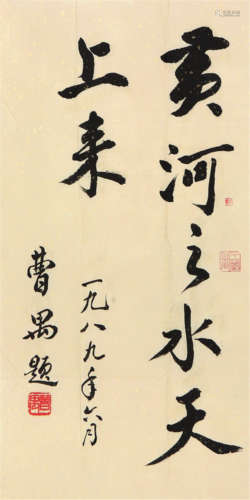 黄河之水天
上来
一九八九年六月
曹禺题